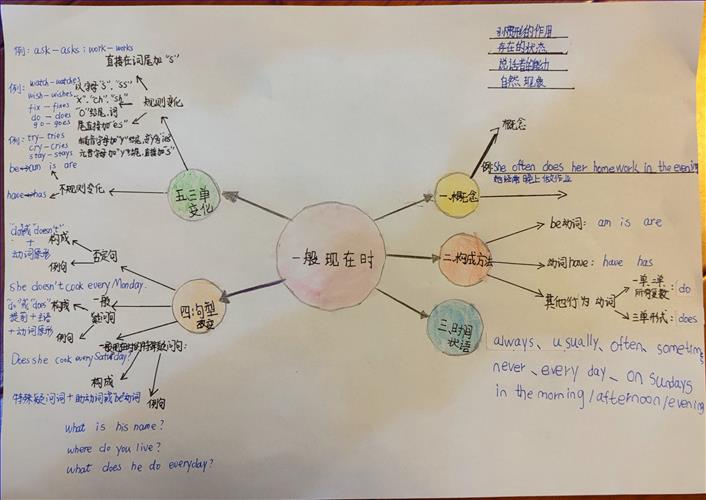 习惯形的作用
存在的状态
说话者的能力
自然现象
一般现在时
一.概念
概念
例:She often does her homework in the evening
她经常晚上做作业
二.构成方法
be动词: am is are
动词have: have has
其他行为动词
一单二单
所有复数: do
三单形式: does
三.时间
状语
always、usually、often、sometime
never、every day、on sundays
in the morning/afternoon/evening
四.句型
改变
否定句
构成
"do或"doesn't"
+
动词原形
例句
she doesn't cook every Monday.
一般
疑问句
构成
"do"或"does"
提前+主语
+动词原形
例句
Does she cook every Saturday?
一般现在时的特殊疑问句:
构成
特殊疑问词+助动词或be动词
例句
what is his name?
where do you live?
what does he do everyday?
五.三单
变化
规则变化
例: ask-asks; work-works
直接在词尾加"s"
例: watch-watches
wish-wishes
fix-fixes
do-does
go-goes
以字母"s","ss"
"x","ch","sh"
"o"结尾,词
尾直接加"es"
例: try-tries
cry-cries
stay-stays
元音字母加"y"结尾,直接加"s"
不规则变化
be→am is are
have→has